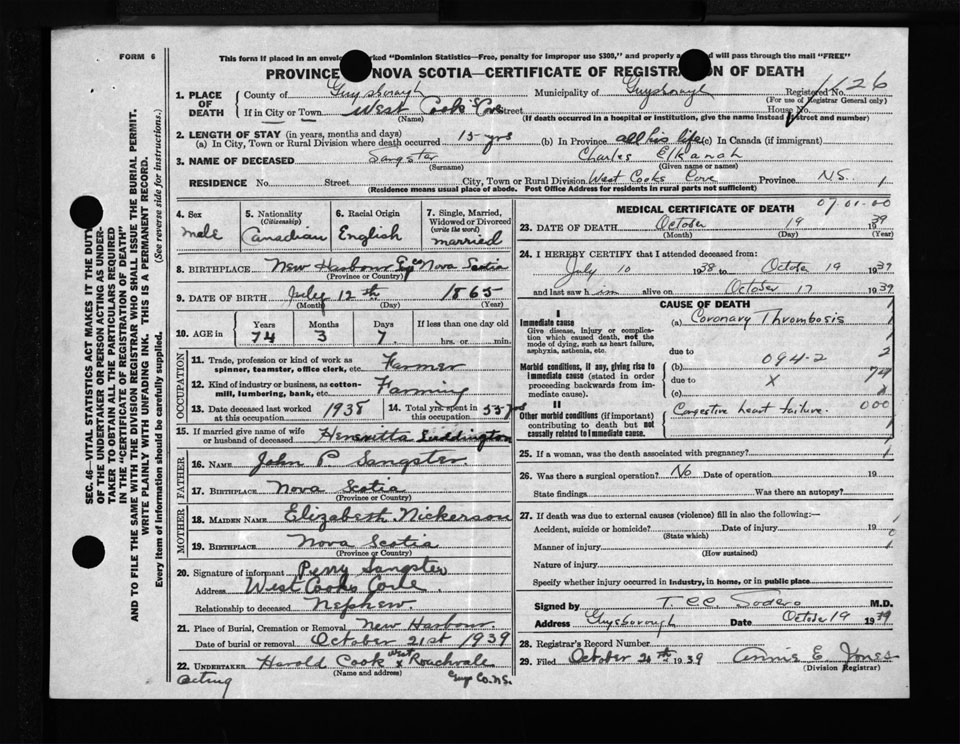 FORM 6
This form if placed in an envelope marked "Dominion Statistics—Free, penalty for improper use $300," and properly a d will pass through the mail "FREE"
PROVINCE NOVA SCOTIA—CERTIFICATE OF REGISTR ON OF DEATH
1126
1. PLACE OF DEATH
County of Guysborough Municipality of Guysborough Registered No.
(For use of Registrar General only)
If in City or Town West Cook's Cove Street House No.
(Name) (If death occurred in a hospital or institution, give the name instead of street and number)
2. LENGTH OF STAY (in years, months and days)
(a) In City, Town or Rural Division where death occurred 15 yrs (b) In Province all his life (c) In Canada (if immigrant)
3. NAME OF DECEASED Sangster Charles Elkanah
(Surname) (Given name or names)
RESIDENCE No. Street City, Town or Rural Division West Cooks Cove Province N.S. 1
(Residence means usual place of abode. Post Office Address for residents in rural parts not sufficient)
4. Sex male
5. Nationality (Citizenship) Canadian
6. Racial Origin English
7. Single, Married, Widowed or Divorced (write the word) married
8. BIRTHPLACE New Harbour Guy Co Nova Scotia
(Province or Country)
9. DATE OF BIRTH July 12th 1865
(Month) (Day) (Year)
10. AGE in Years 74 Months 3 Days 7 If less than one day old hrs. or min.
OCCUPATION
11. Trade, profession or kind of work as spinner, teamster, office clerk, etc. Farmer
12. Kind of industry or business, as cotton-mill, lumbering, bank, etc. Farming
13. Date deceased last worked at this occupation 1938 14. Total yrs. spent in this occupation 55 yrs
15. If married give name of wife or husband of deceased Henrietta Luddington
FATHER
16. NAME John P. Sangster.
17. BIRTHPLACE Nova Scotia
(Province or Country)
MOTHER
18. MAIDEN NAME Elizabeth Nickerson
19. BIRTHPLACE Nova Scotia
(Province or Country)
20. Signature of informant Perry Sangster
Address West Cooks Cove
Relationship to deceased Nephew.
21. Place of Burial, Cremation or Removal New Harbour.
Date of burial or removal October 21st 1939
22. UNDERTAKER Harold Cook x West Roachvale
(Name and address)
Acting Guys Co. N.S.
MEDICAL CERTIFICATE OF DEATH 07.01.00
23. DATE OF DEATH October 19 1939
(Month) (Day) (Year)
24. I HEREBY CERTIFY that I attended deceased from
July 10 1938 to October 19 1939
and last saw him alive on October 17 1939
CAUSE OF DEATH
I
Immediate cause (a) Coronary Thrombosis
Give disease, injury or complication which caused death, not the mode of dying, such as heart failure, asphyxia, asthenia, etc.
due to 094-2 2
Morbid conditions, if any, giving rise to immediate cause (stated in order proceeding backwards from immediate cause).
(b)
due to X 74
(c)
II
Other morbid conditions (if important) contributing to death but not causally related to immediate cause.
Congestive heart failure. 000
25. If a woman, was the death associated with pregnancy? 1
26. Was there a surgical operation? No Date of operation 19
State findings Was there an autopsy?
27. If death was due to external causes (violence) fill in also the following:—
Accident, suicide or homicide? Date of injury 19
(State which)
Manner of injury
(How sustained)
Nature of injury
Specify whether injury occurred in industry, in home, or in public place
Signed by T C C Sodero M.D.
Address Guysborough Date October 19 1939
28. Registrar's Record Number
29. Filed October 20th 1939 Annie E. Jones
(Division Registrar)
SEC. 46—VITAL STATISTICS ACT MAKES IT THE DUTY
OF THE UNDERTAKER OR PERSON ACTING AS UNDER-
TAKER TO OBTAIN ALL THE PARTICULARS REQUIRED
IN THE "CERTIFICATE OF REGISTRATION OF DEATH"
AND TO FILE THE SAME WITH THE DIVISION REGISTRAR WHO SHALL ISSUE THE BURIAL PERMIT.
WRITE PLAINLY WITH UNFADING INK. THIS IS A PERMANENT RECORD.
Every item of information should be carefully supplied. (See reverse side for instructions.)